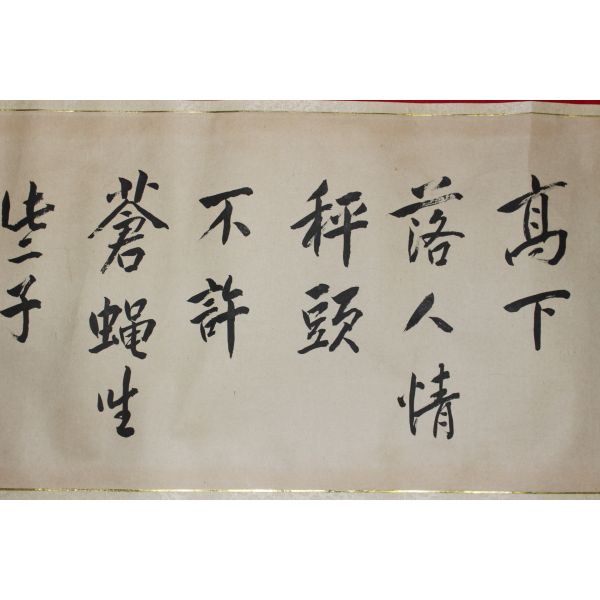 高下
落人情
秤頭
不許
蒼蝿坐
些子